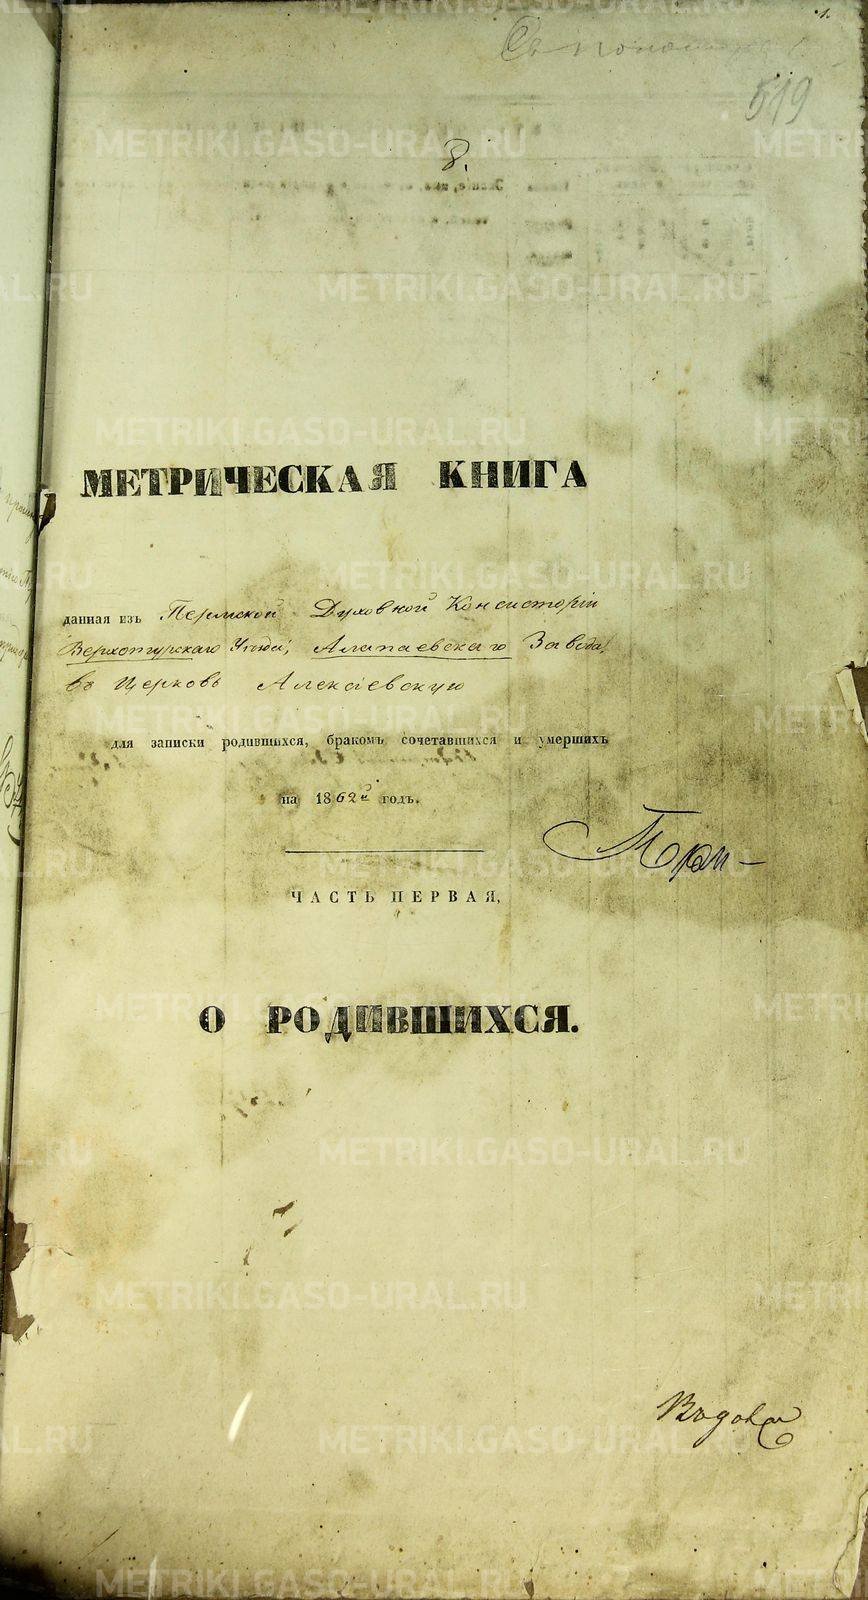 1.
519
8.
МЕТРИЧЕСКАЯ КНИГА
данная изъ Пермской Духовной Консисторіи
Верхотурскаго Уѣзда, Алапаевскаго Завода,
въ Церковь Алексіевскую
для записки родившихся, бракомъ сочетавшихся и умершихъ
на 1862й годъ.
ЧАСТЬ ПЕРВАЯ,
О РОДИВШИХСЯ.
METRIKI.GASO-URAL.RU